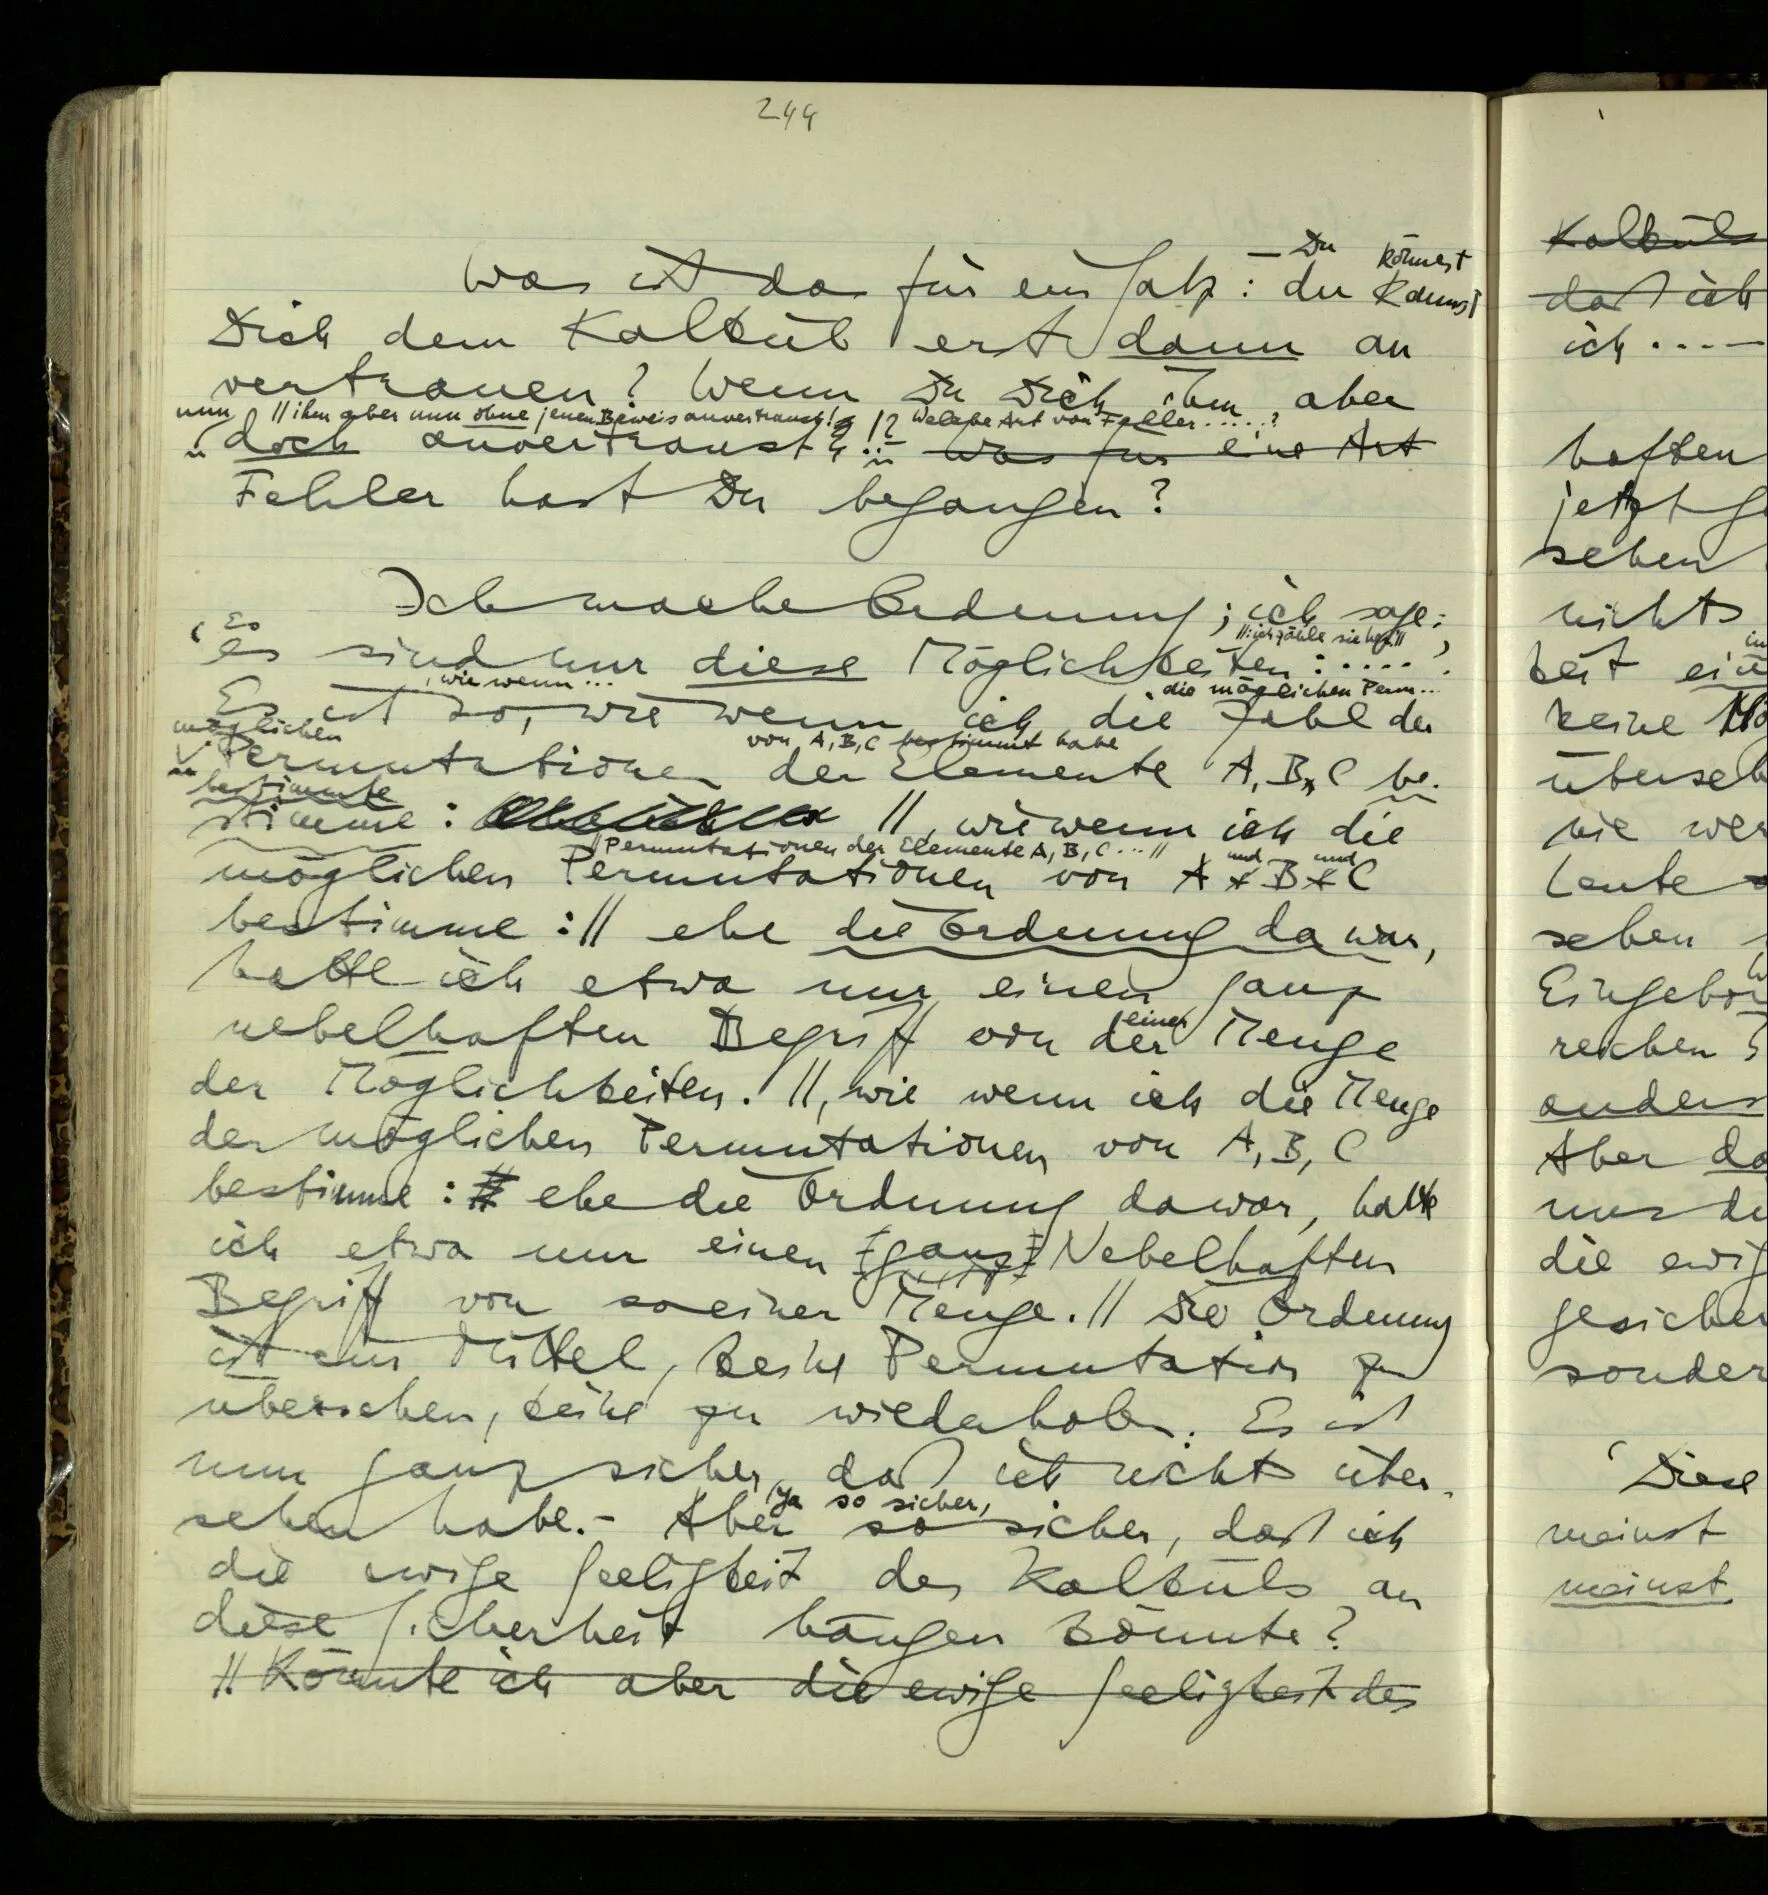 244
— Du könnest
Was ist das für ein Satz: du kannst
Dich dem Kalkül erst dann an
vertrauen? Wenn Du Dich ihm aber
nun // ihm aber nun ohne jenen Beweis anvertraust!? Welche Art von Fehler.....?
doch anvertraust?!! – Was für eine Art
Fehler hast Du begangen?
Ich mache Ordnung; ich sage:
Es // : ich zähle sie her: //
‘es sind nur diese Möglichkeiten: ....’.
, wie wenn... die möglichen Perm...
Es ist so, wie wenn ich die Zahl der
möglichen von A, B, C bestimmt habe
Permutationen der Elemente A, B, C be-
bestimmte
stimme: // , wie wenn ich die
Permutationen der Elemente A, B, C ... // und und
möglichen Permutationen von A B C
bestimme: // ehe die Ordnung da war,
hatte ich etwa nur einen ganz
einer
nebelhaften Begriff von der Menge
der Möglichkeiten. //, wie wenn ich die Menge
der möglichen Permutationen von A, B, C
bestimme: ehe die Ordnung da war, hatte
ich etwa nur einen ganz Nebelhaften
Begriff von so einer Menge. // Die Ordnung
ist ein Mittel, keine Permutation zu
übersehen, keine zu wiederholen. Es ist
nun ganz sicher, daß ich nichts über-
ja so sicher,
sehen habe. – Aber so sicher, daß ich
die ewige Seeligkeit des Kalküls an
diese Sicherheit hängen könnte?
// Könnte ich aber die ewige Seeligkeit des
Kalküls
daß ich
ich ....
haften
jetzt
sehen
nichts
keit
keine
überseh
wie wer
Leute
sehen
Eingebor
reichen
anders
Aber da
uns
die ewig
gesicher
sonder
‘Diese
meinst
meinst